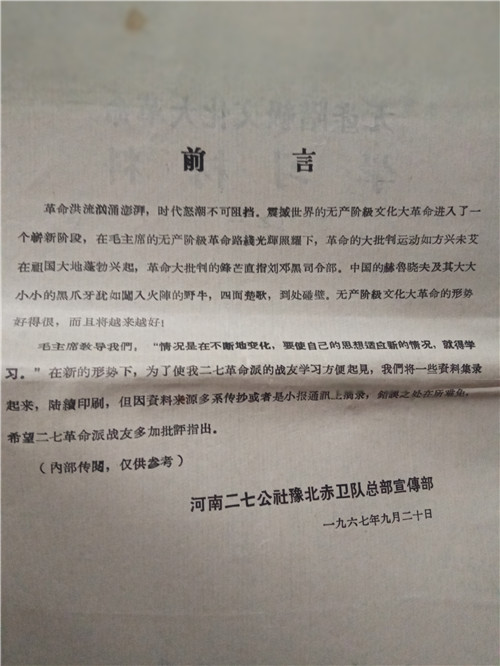 前言
革命洪流汹涌澎湃，时代怒潮不可阻挡。震撼世界的无产阶級文化大革命进入了一
个崭新阶段，在毛主席的无产阶級革命路綫光輝照耀下，革命的大批判运动如方兴未艾
在祖国大地蓬勃兴起，革命大批判的鋒芒直指刘邓黑司令部。中国的赫魯晓夫及其大大
小小的黑爪牙犹如闖入火陣的野牛，四面楚歌，到处碰壁。无产阶級文化大革命的形势
好得很，而且将越来越好！
毛主席敎导我們，“情况是在不断地变化，要使自己的思想适应新的情况，就得学
习。”在新的形势下，为了使我二七革命派的战友学习方便起見，我們将一些資料集录
起来，陆續印刷，但因資料来源多系传抄或者是小报通訊上摘录，錯誤之处在所难免，
希望二七革命派战友多加批評指出。
（內部传閱，仅供参考）
河南二七公社豫北赤卫队总部宣傳部
一九六七年九月二十日